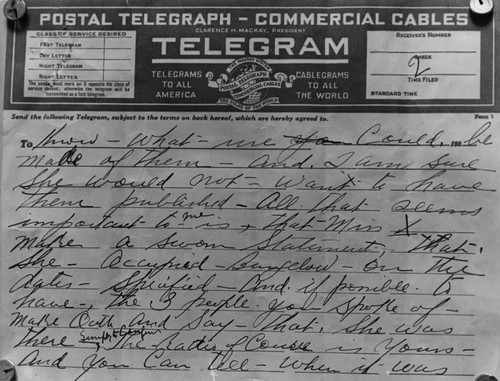 POSTAL TELEGRAPH - COMMERCIAL CABLES
CLARENCE H. MACKAY, PRESIDENT
TELEGRAM
CLASS OF SERVICE DESIRED
FAST TELEGRAM
DAY LETTER
NIGHT TELEGRAM
NIGHT LETTER
TELEGRAMS
TO ALL
AMERICA
THE MACKAY SYSTEM
POSTAL TELEGRAPH
COMMERCIAL CABLES
CABLEGRAMS
TO ALL
THE WORLD
RECEIVER'S NUMBER
TIME FILED
STANDARD TIME
Send the following Telegram, subject to the terms on back hereof, which are hereby agreed to.
Form 1
To Know - What - use Could be
made of them - And I am sure
She would not - want to have
them published - All that seems
important to me is, that Miss X
make a sworn Statement, That
She - Occupied Bungelow - On the
dates - Specified - And if possible to
have - the 3 people you spoke of -
make Oath And Say - that She was
there Simple to Confirm, The matter of Course is Yours -
And you Can tell - When it was